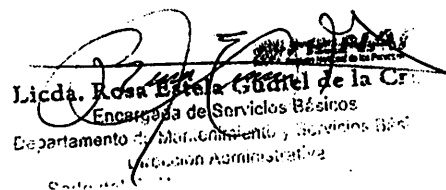 Licda. Rosa Estela Gudiel de la Cr
Encargada de Servicios Básicos
Departamento de Mantenimiento y Servicios Bási
Dirección Administrativa